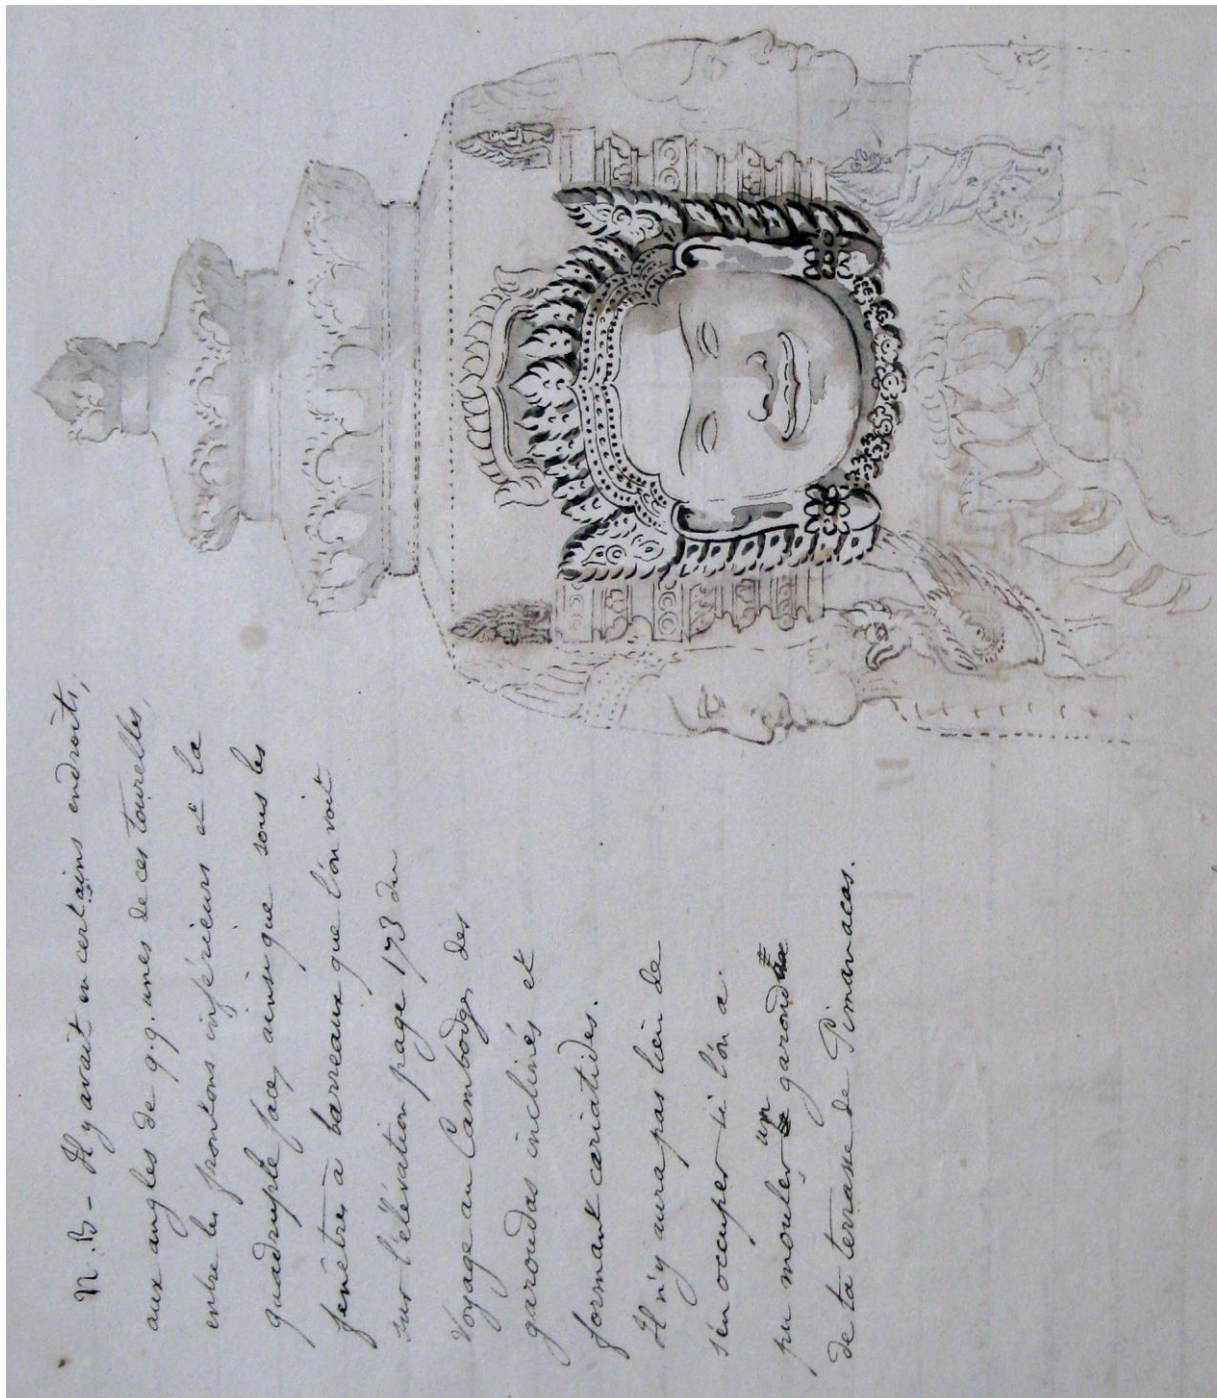 N.B – Il y avait en certains endroits,
aux angles de q.q. unes de ces tourelles,
entre les frontons inférieurs et la
quadruple face, ainsi que sous les
fenêtres à barreaux que l'on voit
sur l'élévation page 173 du
Voyage au Cambodge, des
garoudas inclinés et
formant cariatides.
Il n'y aura pas lieu de
s'en occuper si l'on a
pu mouler un garouda
de la terrasse de Pimanacas.